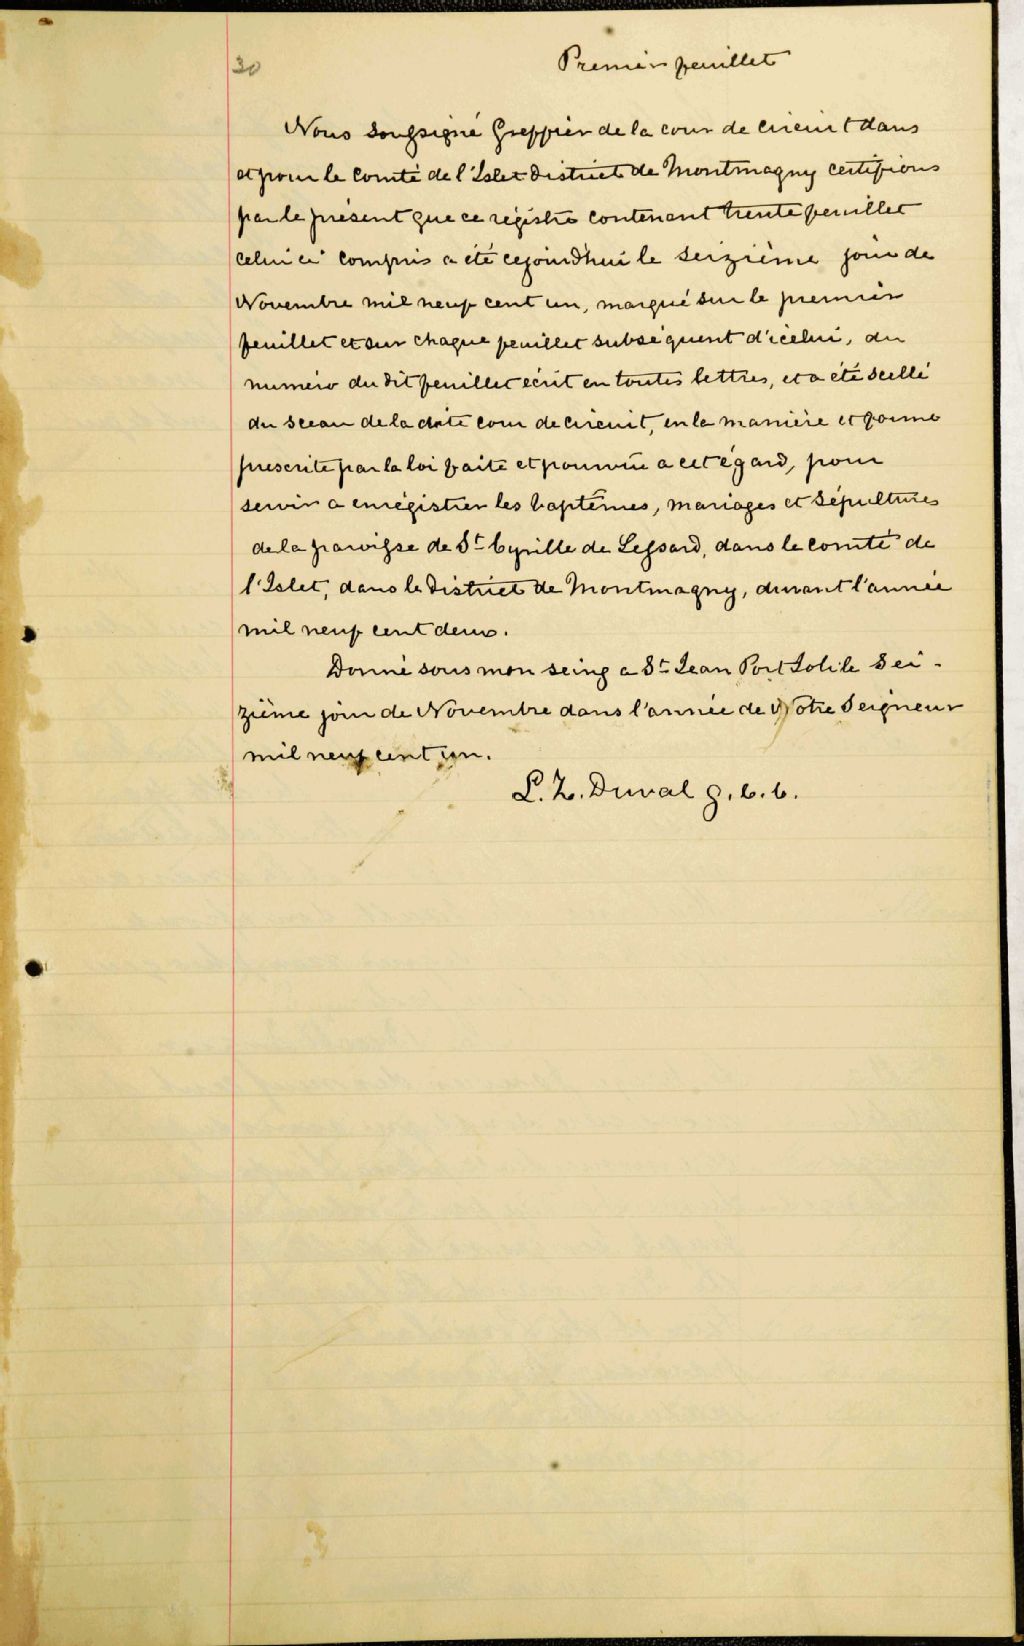 30
Premier feuillet
Nous soussigné Greffier de la cour de circuit dans
et pour le Comté de l'Islet District de Montmagny certifions
par le présent que ce régistre contenant trente feuillet
celui ci compris a été cejourd'hui le seizième jour de
Novembre mil neuf cent un, marqué sur le premier
feuillet et sur chaque feuillet subséquent d'icelui, du
numéro du dit feuillet écrit en toutes lettres, et a été scellé
du sceau de la dite cour de circuit, en la manière et forme
prescrite par la loi faite et pourvue a cet égard, pour
servir a enrégistrer les baptêmes, mariages et sépultures
de la paroisse de St Cyrille de Lessard, dans le comté de
l'Islet, dans le District de Montmagny, durant l'année
mil neuf cent deux.
Donné sous mon seing a St Jean Port Joli le Sei-
zième jour de Novembre dans l'année de Notre Seigneur
mil neuf cent un.
L. Z. Duval g. c. c.